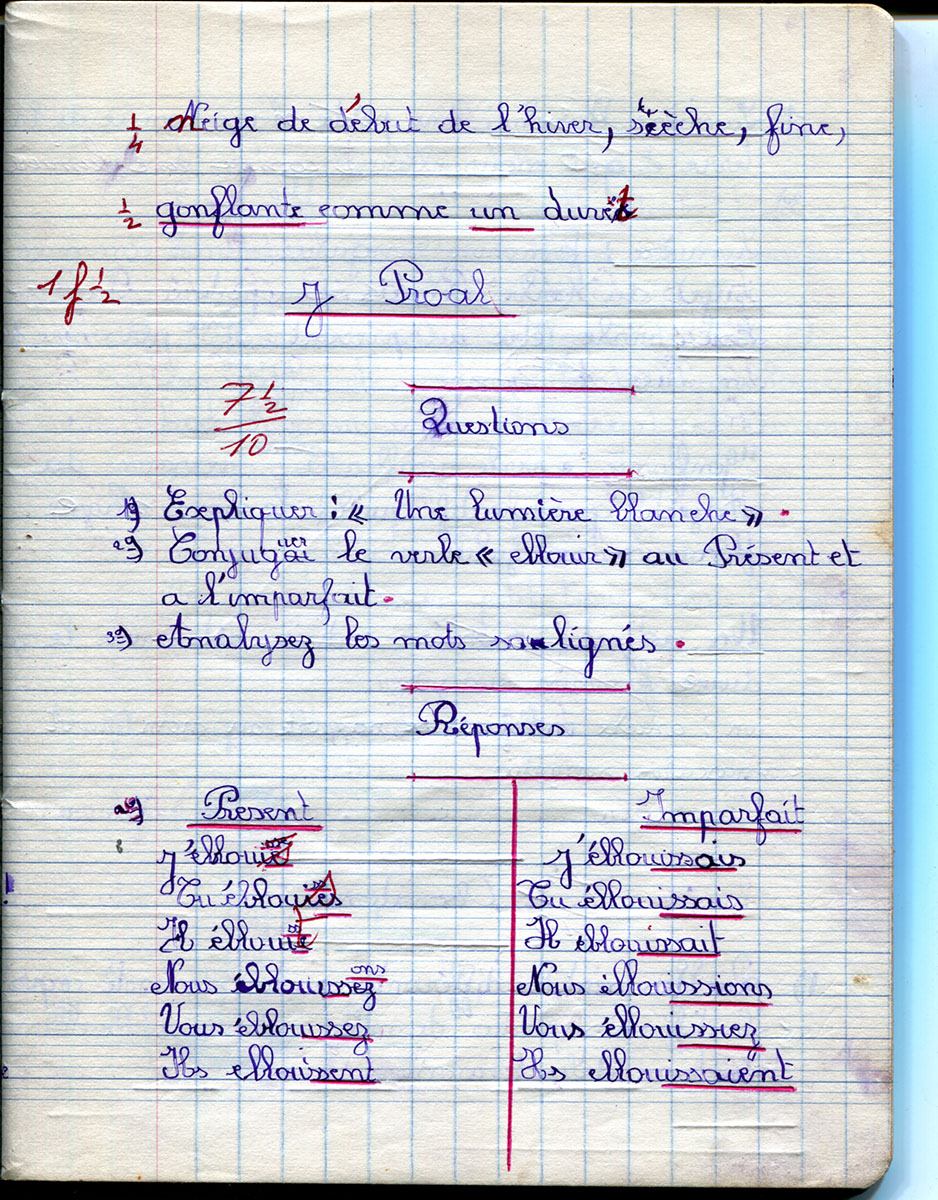 1/4 Neige de début de l'hiver, sèche, fine,
1/2 gonflante comme un duvet
1 f 1/2 J Proal
7 1/2 / 10
Questions
1°) Expliquer : « Une lumière blanche » .
2°) Conjuguer le verbe « eblouir » au Présent et
a l'imparfait .
3°) Analysez les mots soulignés .
Réponses
2°) Present Imparfait
J'éblouis J'éblouissais
Tu éblouis Tu éblouissais
Il éblouit Il eblouissait
Nous éblouissez ons Nous éblouissions
Vous éblouissez Vous éblouissiez
Ils eblouissent Ils eblouissaient